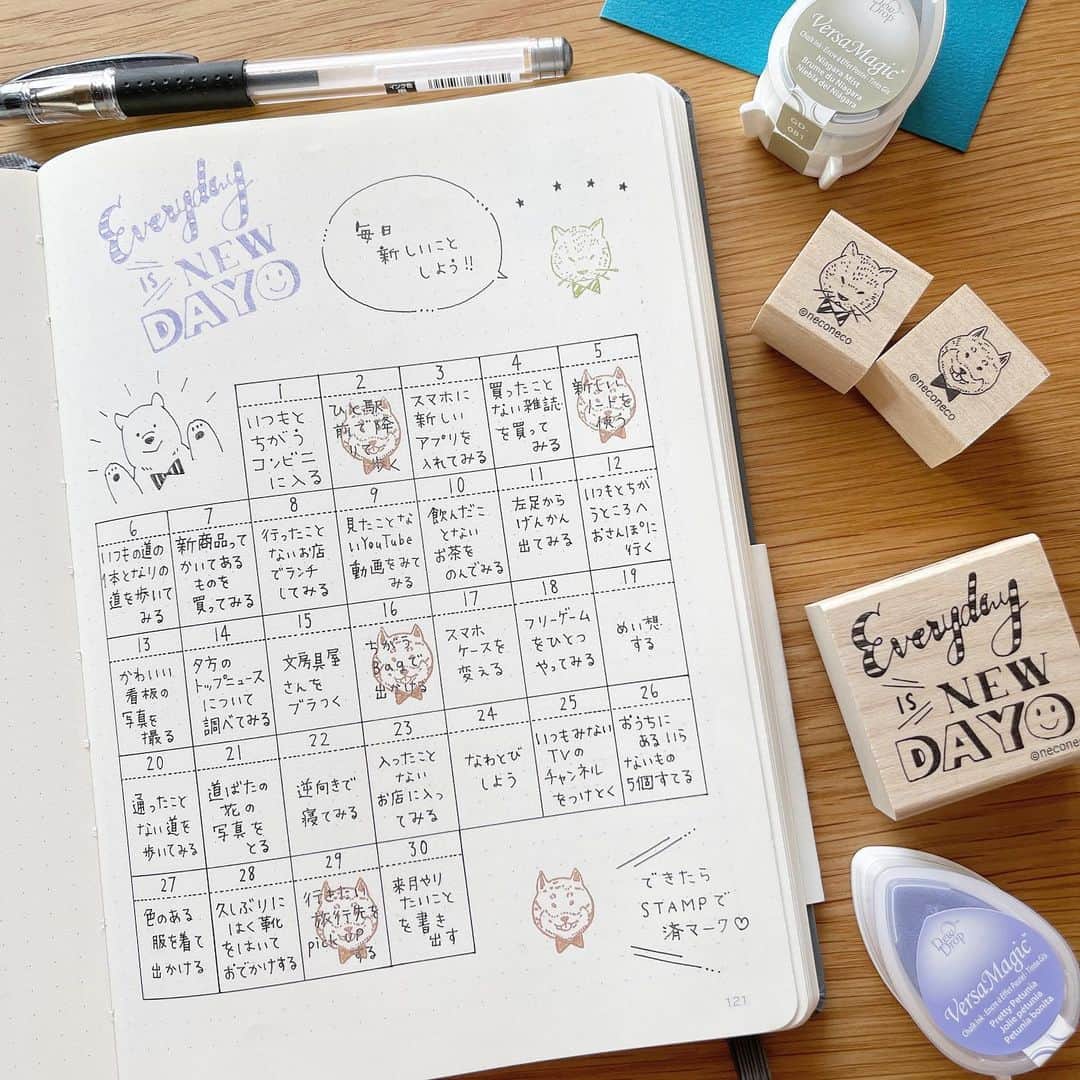 Everyday
IS NEW
DAY
毎日
新しいこと
しよう!!
1
いつもと
ちがう
コンビニ
に入る
2
ひと駅
前で降
りて
歩く
3
スマホに
新しい
アプリを
入れてみる
4
買ったこと
ない雑誌
を買って
みる
5
新しい
を
使う
6
いつもの道の
1本となりの
道を歩いて
みる
7
新商品って
かいてある
ものを
買ってみる
8
行ったこと
ないお店
でランチ
してみる
9
見たことな
いYouTube
動画をみて
みる
10
飲んだこ
とない
お茶を
のんでみる
11
左足から
げんかん
出てみる
12
いつもとちが
うところへ
おさんぽに
行く
13
かわいい
看板の
写真を
撮る
14
夕方の
トップニュース
について
調べてみる
15
文房具屋
さんを
ブラつく
16
ちがう
Bagで
出かける
17
スマホ
ケースを
変える
18
フリーゲーム
をひとつ
やってみる
19
めい想
する
20
通ったこと
ない道を
歩いてみる
21
道ばたの
花の
写真を
とる
22
逆向きで
寝てみる
23
入ったこと
ない
お店に入っ
てみる
24
なわとび
しよう
25
いつもみない
TVの
チャンネル
をつけとく
26
おうちに
あるいら
ないもの
5個すてる
27
色のある
服を着て
出かける
28
久しぶりに
はく靴
をはいて
おでかけする
29
行きたい
旅行先を
pick up
する
30
来月やり
たいこと
を書き
出す
できたら
STAMPで
済マーク♡
121
Dew
Drop
VersaMagic
Chalk Ink • Encre d'Effet Pastel • Tinta Giz
Niagara Mist
Brume du Niagara
Niebla del Niágara
GD
081
@neconeco
@neconeco
Everyday
IS NEW
DAY
@neconeco
Dew
Drop
VersaMagic
Chalk Ink • Encre d'Effet Pastel • Tinta Giz
Pretty Petunia
Jolie pétunia
Petunia bonita